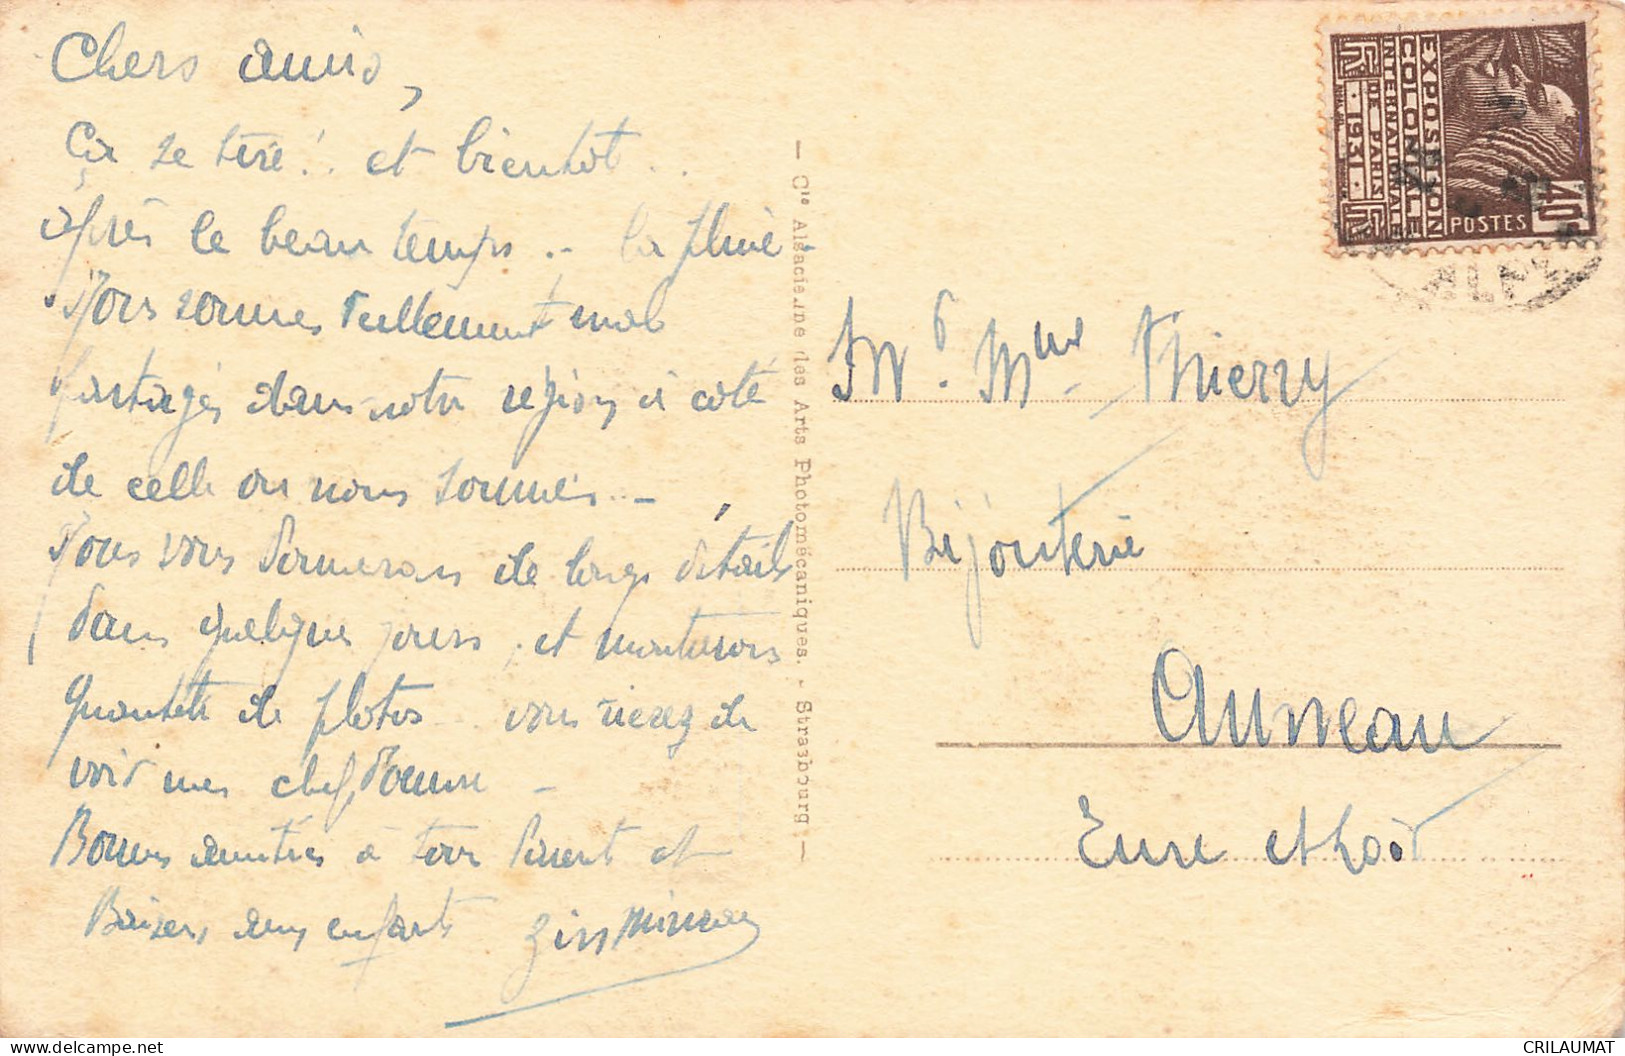 Chers amis,
Ça se tire! et bientôt..
après le beau temps.. la pluie.
Nous sommes réellement mal
partagés dans notre région à côté
de celle ou nous sommes..–
Nous vous donnerons de longs détails
dans quelques jours, et montrerons
quantité de photos.. vous rierez de
voir mes chef, d'œuvre –
Bonnes amitiés à tous deux et
Baisers aux enfants
– Cie Alsacienne des Arts Photomécaniques. - Strasbourg –
EXPOSITION
COLONIALE
INTERNATIONALE
DE PARIS
1931
POSTES
40c
Mr. Mme Thierry
Bijouterie
Auneau
Eure et Loir
CRILAUMAT